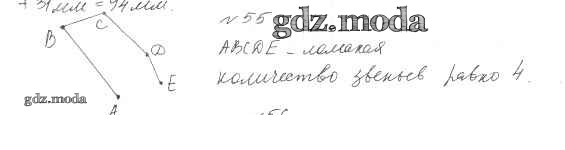 + 31мм = 94мм.
№ 55
gdz.moda
B C D E A
ABCDE - ломаная
количество звеньев равно 4.
gdz.moda